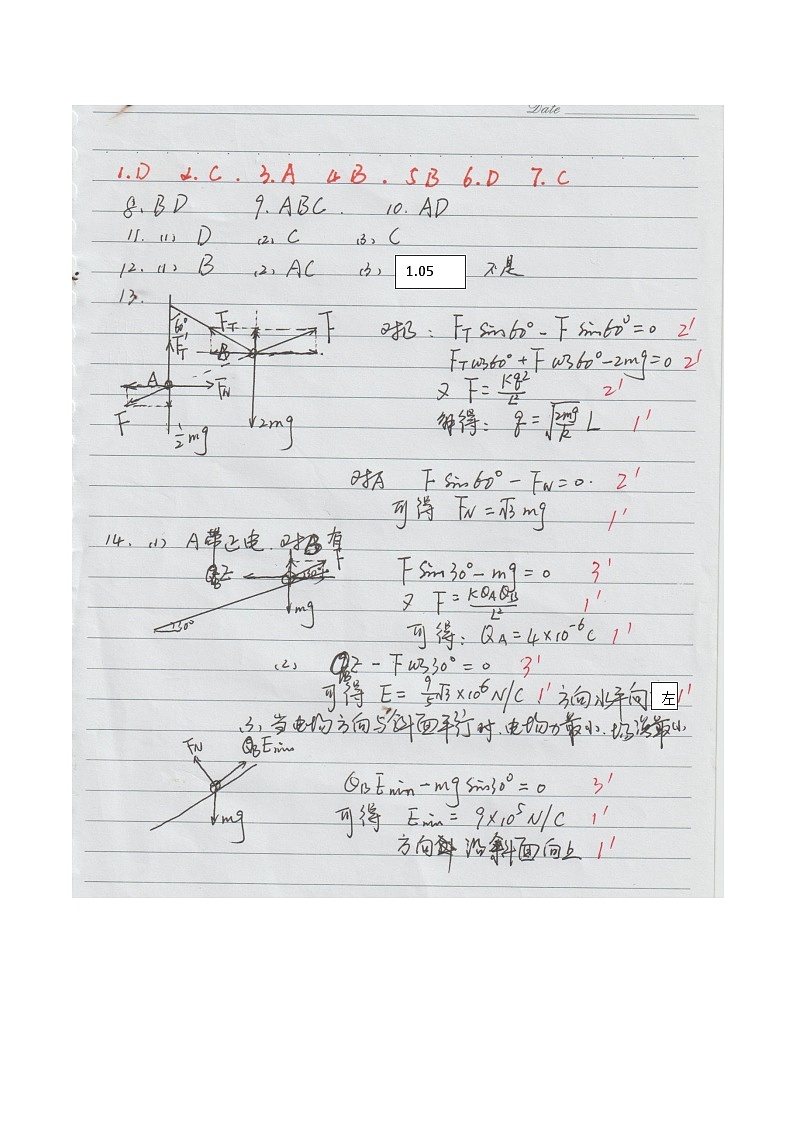 Date
1.D 2.C. 3.A 4.B. 5B 6.D 7.C
8. BD 9. ABC. 10. AD
11. (1) D (2) C (3) C
12. (1) B (2) AC (3) 1.05 不是
13.
60° F_T F
F_T' B
A F_N
F ½mg 2mg
对B: F_T sin60° - F sin60° = 0 2'
F_T cos60° + F cos60° - 2mg = 0 2'
又 F = Kq²/L² 2'
解得: q = √(2mg/k) L 1'
对A F sin60° - F_N = 0. 2'
可得 F_N = √3 mg 1'
14. (1) A带正电. 对B有
F
Q_B E 30°
mg
30°
F sin30° - mg = 0 3'
又 F = KQ_AQ_B/L² 1'
可得: Q_A = 4×10⁻⁶ C 1'
(2) Q_B E - F cos30° = 0 3'
可得 E = 9/5 √3 ×10⁶ N/C 1' 方向水平向左 1'
(3) 当电场方向与斜面平行时, 电场力最小, 场强最小
F_N Q_B Emin
mg
Q_B Emin - mg sin30° = 0 3'
可得 Emin = 9×10⁵ N/C 1'
方向 沿斜面向上 1'